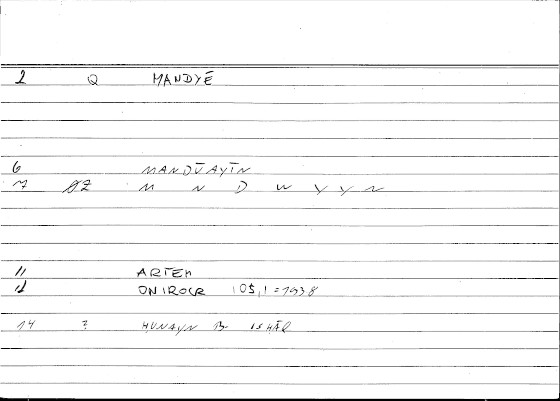 2 Q MANDYĒ
6 MANDŪAYĪN
7 GZ M N D W Y Y N
11 ARTEM
12 ONIROCR 105,1 = 1938
14 ? HUNAYN B ISHĀQ